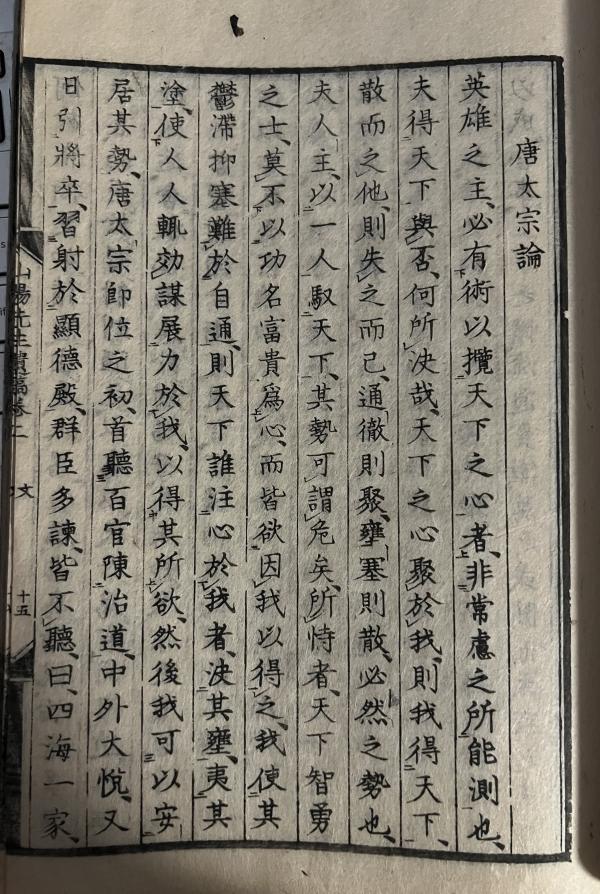 唐太宗論
英雄之主、必有術以攬天下之心者、非常慮之所能測也、
夫得天下與否、何所決哉、天下之心聚於我、則我得天下、
散而之他、則失之而已、通徹則聚、壅塞則散、必然之勢也、
夫人主、以一人馭天下、其勢可謂危矣、所恃者、天下智勇
之士、莫不以功名富貴爲心、而皆欲因我以得之、我使其
鬱滯抑塞難於自通、則天下誰注心於我者、決其壅、夷其
塗、使人人輒効謀展力於我、以得其所欲、然後我可以安
居其勢、唐太宗卽位之初、首聽百官陳治道、中外大悅、又
日引將卒、習射於顯德殿、群臣多諫、皆不聽、曰、四海一家、
山陽先生遺稿卷二
文
十五